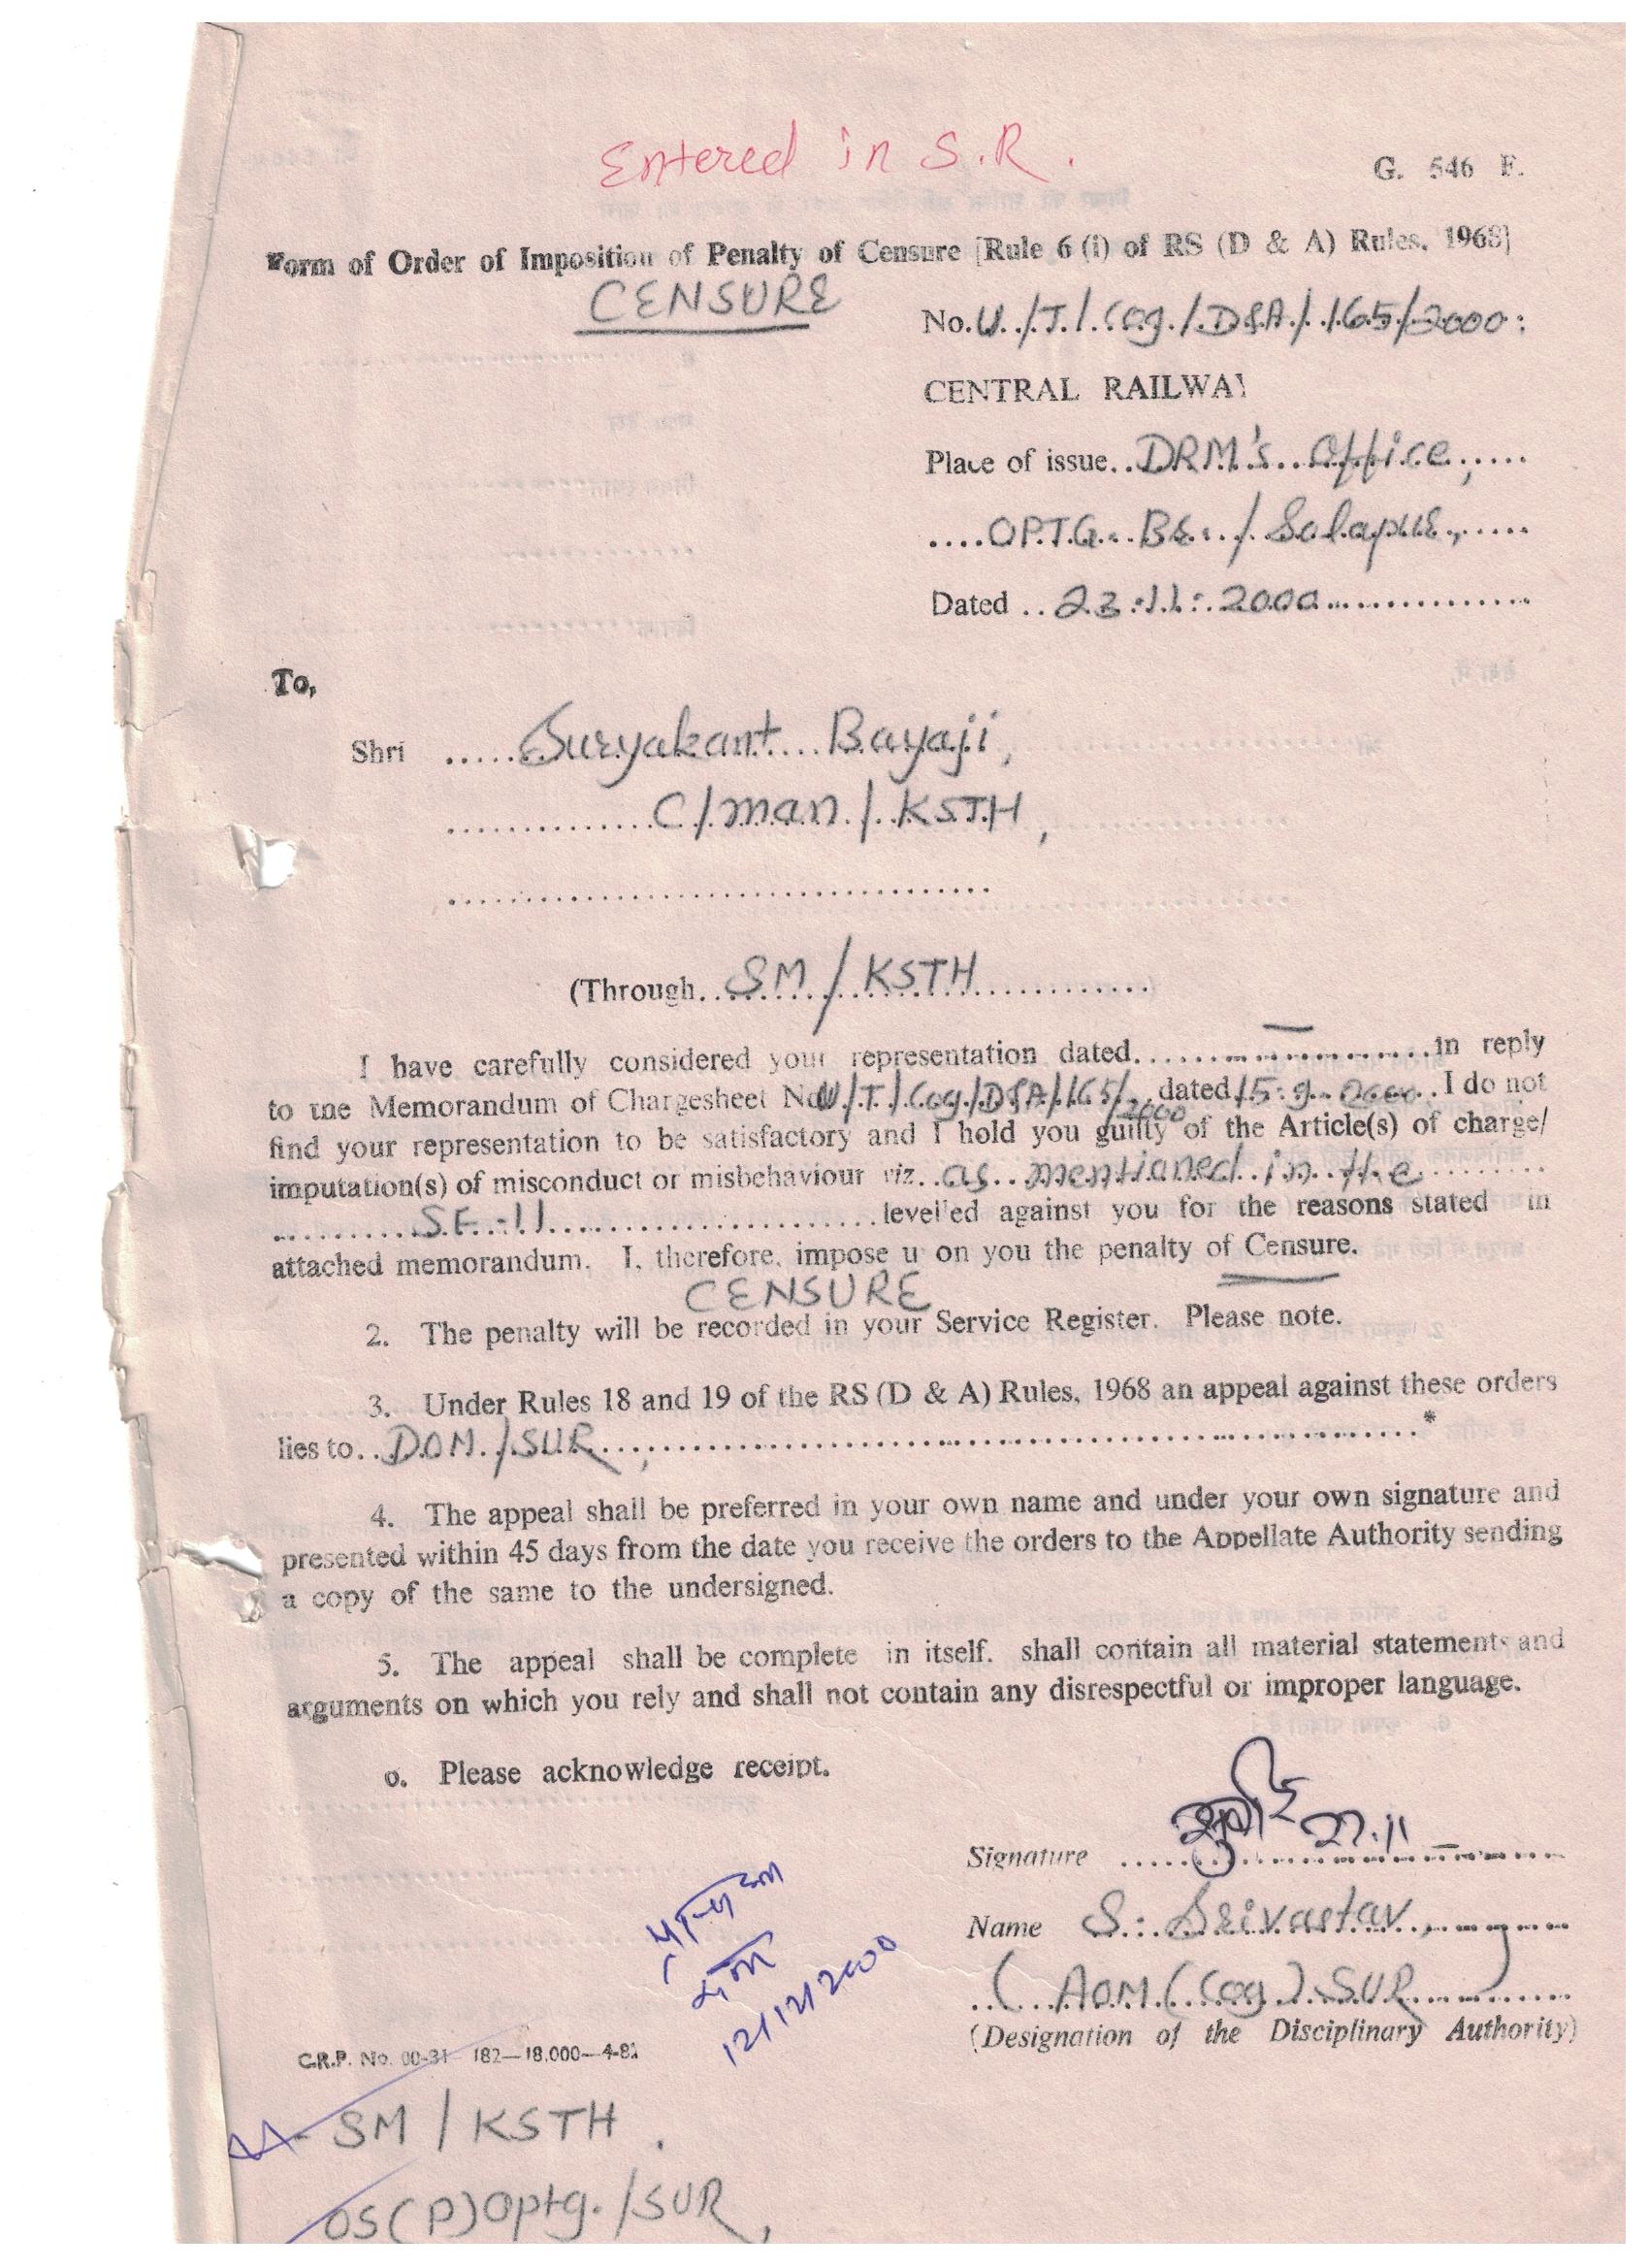 Entered in S.R.
G. 546 F.
Form of Order of Imposition of Penalty of Censure [Rule 6 (i) of RS (D & A) Rules, 1968]
CENSURE
No. U/T/Cog/D&A/165/2000:
CENTRAL RAILWAY
Place of issue..DRM's Office,
OPTG. Br./Solapur,
Dated ..23.11.2000
To,
Shri Suryakant Bayaji,
C/man/KSTH,
(Through SM/KSTH
I have carefully considered your representation dated — in reply
to the Memorandum of Chargesheet No U/T/Cog/D&A/165/2000, dated 15.9.2000. I do not
find your representation to be satisfactory and I hold you guilty of the Article(s) of charge/
imputation(s) of misconduct or misbehaviour viz. as mentioned in the
S.F-11 levelled against you for the reasons stated in
attached memorandum. I, therefore, impose u on you the penalty of Censure.
CENSURE
2. The penalty will be recorded in your Service Register. Please note.
3. Under Rules 18 and 19 of the RS (D & A) Rules, 1968 an appeal against these orders
lies to DOM/SUR, *
4. The appeal shall be preferred in your own name and under your own signature and
presented within 45 days from the date you receive the orders to the Appellate Authority sending
a copy of the same to the undersigned.
5. The appeal shall be complete in itself. shall contain all material statements and
arguments on which you rely and shall not contain any disrespectful or improper language.
6. Please acknowledge receipt.
Signature 22.11
Name S. Srivastav,
(AOM (Cog) SUR)
(Designation of the Disciplinary Authority)
12/12/2000
C.R.P. No. 00-31 182—18,000—4-82
SM / KSTH.
OS(P)Optg./SUR,